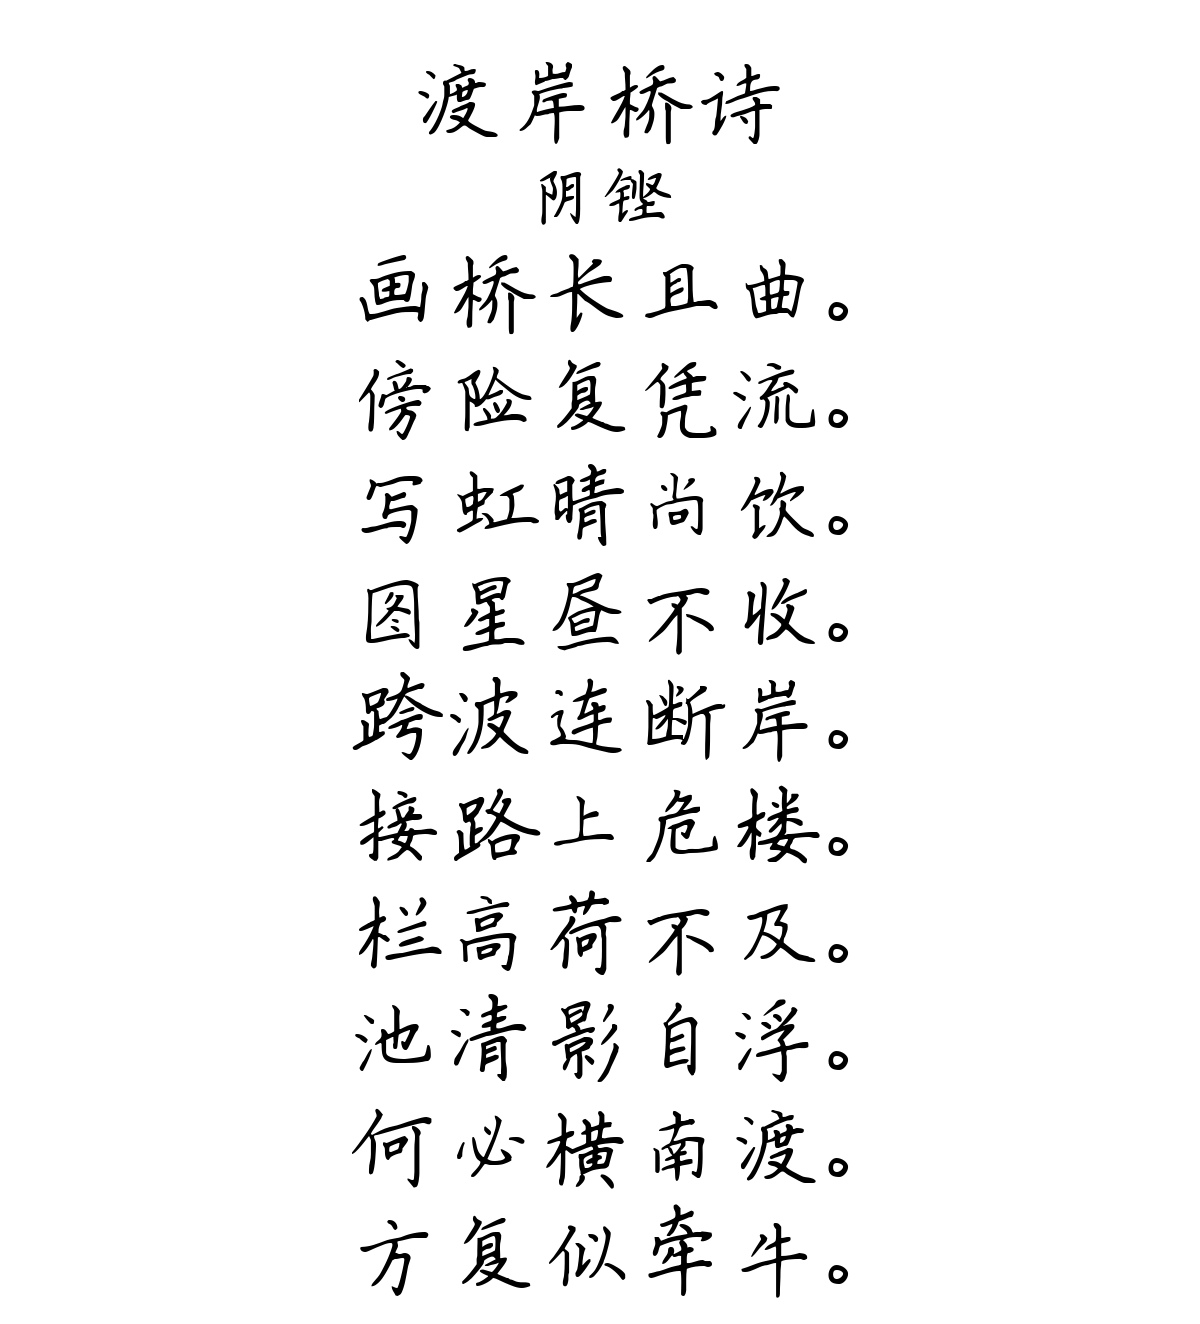 渡岸桥诗
阴铿
画桥长且曲。
傍险复凭流。
写虹晴尚饮。
图星昼不收。
跨波连断岸。
接路上危楼。
栏高荷不及。
池清影自浮。
何必横南渡。
方复似牵牛。